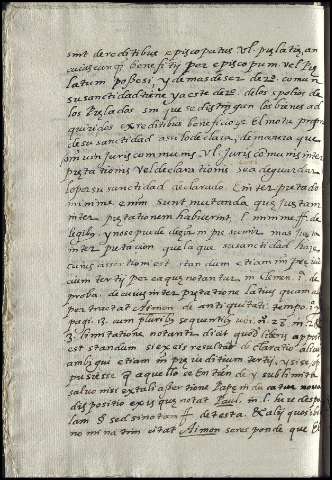 sint de reditibus episcopatus vl. prelatis, an
beneficij per episcopum vel pre
latum possesi, y demas de ser de dro. comun
su sanctidad tiene ya este dro. de los spolios de
los prelados sin que se distinguan los bienes ad
quiridos ex reditibus beneficior. El motu proprio
de su sanctidad asi lo declara, de manera que
in uim juris communis vl. juris communis inter
pretationis vel declarationis sea de guardar
lo por su sanctidad declarado. E interpretado
minime enim sunt mutanda que justam
interpretationem habuerint, l. minime ff. de
legibus y no se puede dezir ni presumir mas justa
interpretacion que la que su sanctidad haze
cuius assertioni est standum etiam in preiudi
cium tertij per ea que notantur, in clemen. j. de
proba. de cuius interpretatione latius quam
per tractat Aimon de antiquitati tempo.
pagi. 13. cum pluribus sequentib.
3. limitatione notanti dicat quod liberis
est standum si ex eis resultat declaratio alicu
ambigui etiam in preiuditium tertij, y si se o
pusiesse q aquello se entiende
salvo nisi ex tali assertione Pape inducatur nova
dispositio ex is que notat Paul. in l. heredes pa
lam § sed si notam ff. de testa. & alij quos ibi
nominatim citat Aimon se responde que